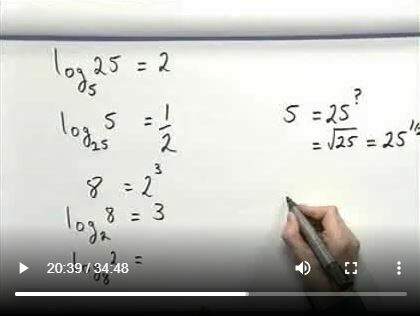 log₅ 25 = 2
log₂₅ 5 = 1/2
8 = 2³
log₂ 8 = 3
log₈ 2 =
5 = 25^?
= √25 = 25^1/2
20:39 / 34:48